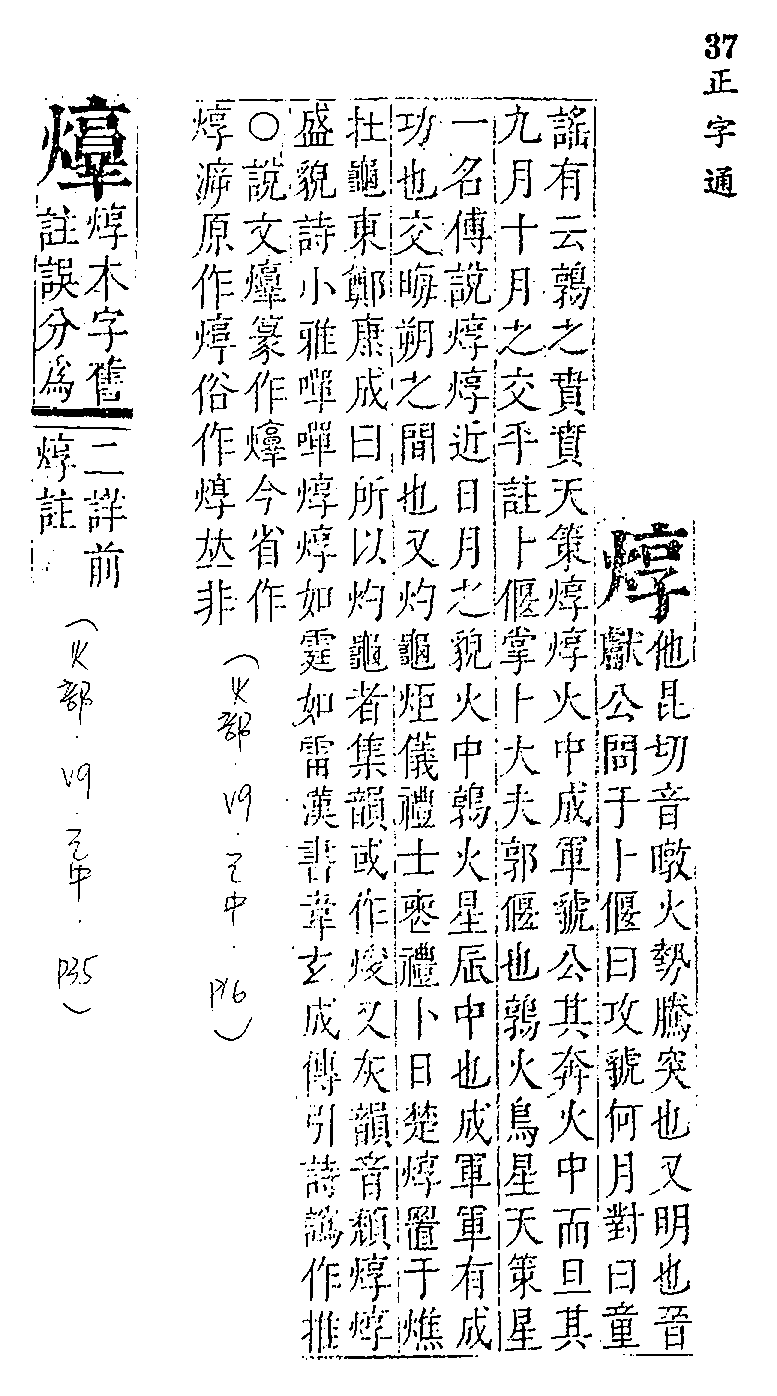 37 正字通
焞
他昆切音暾火勢騰突也又明也晉
獻公問于卜偃曰攻虢何月對曰童
謠有云鶉之賁賁天策焞焞火中成軍虢公其奔火中而旦其
九月十月之交乎註卜偃掌卜大夫郭偃也鶉火鳥星天策星
一名傅說焞焞近日月之貌火中鶉火星辰中也成軍軍有成
功也交晦朔之間也又灼龜炬儀禮士喪禮卜日楚焞置于燋
在龜東鄭康成曰所以灼龜者集韻或作焌又灰韻音頹焞焞
盛貌詩小雅嘽嘽焞焞如霆如雷漢書韋玄成傳引詩譌作推
○說文𤏙篆作𤏙今省作
焞㵂原作焞俗作焞𠀤非
(火部.V9.巳中.P16)
𤏙
焞本字舊
註誤分爲
二詳前
焞註
(火部.V9.巳中.P35)